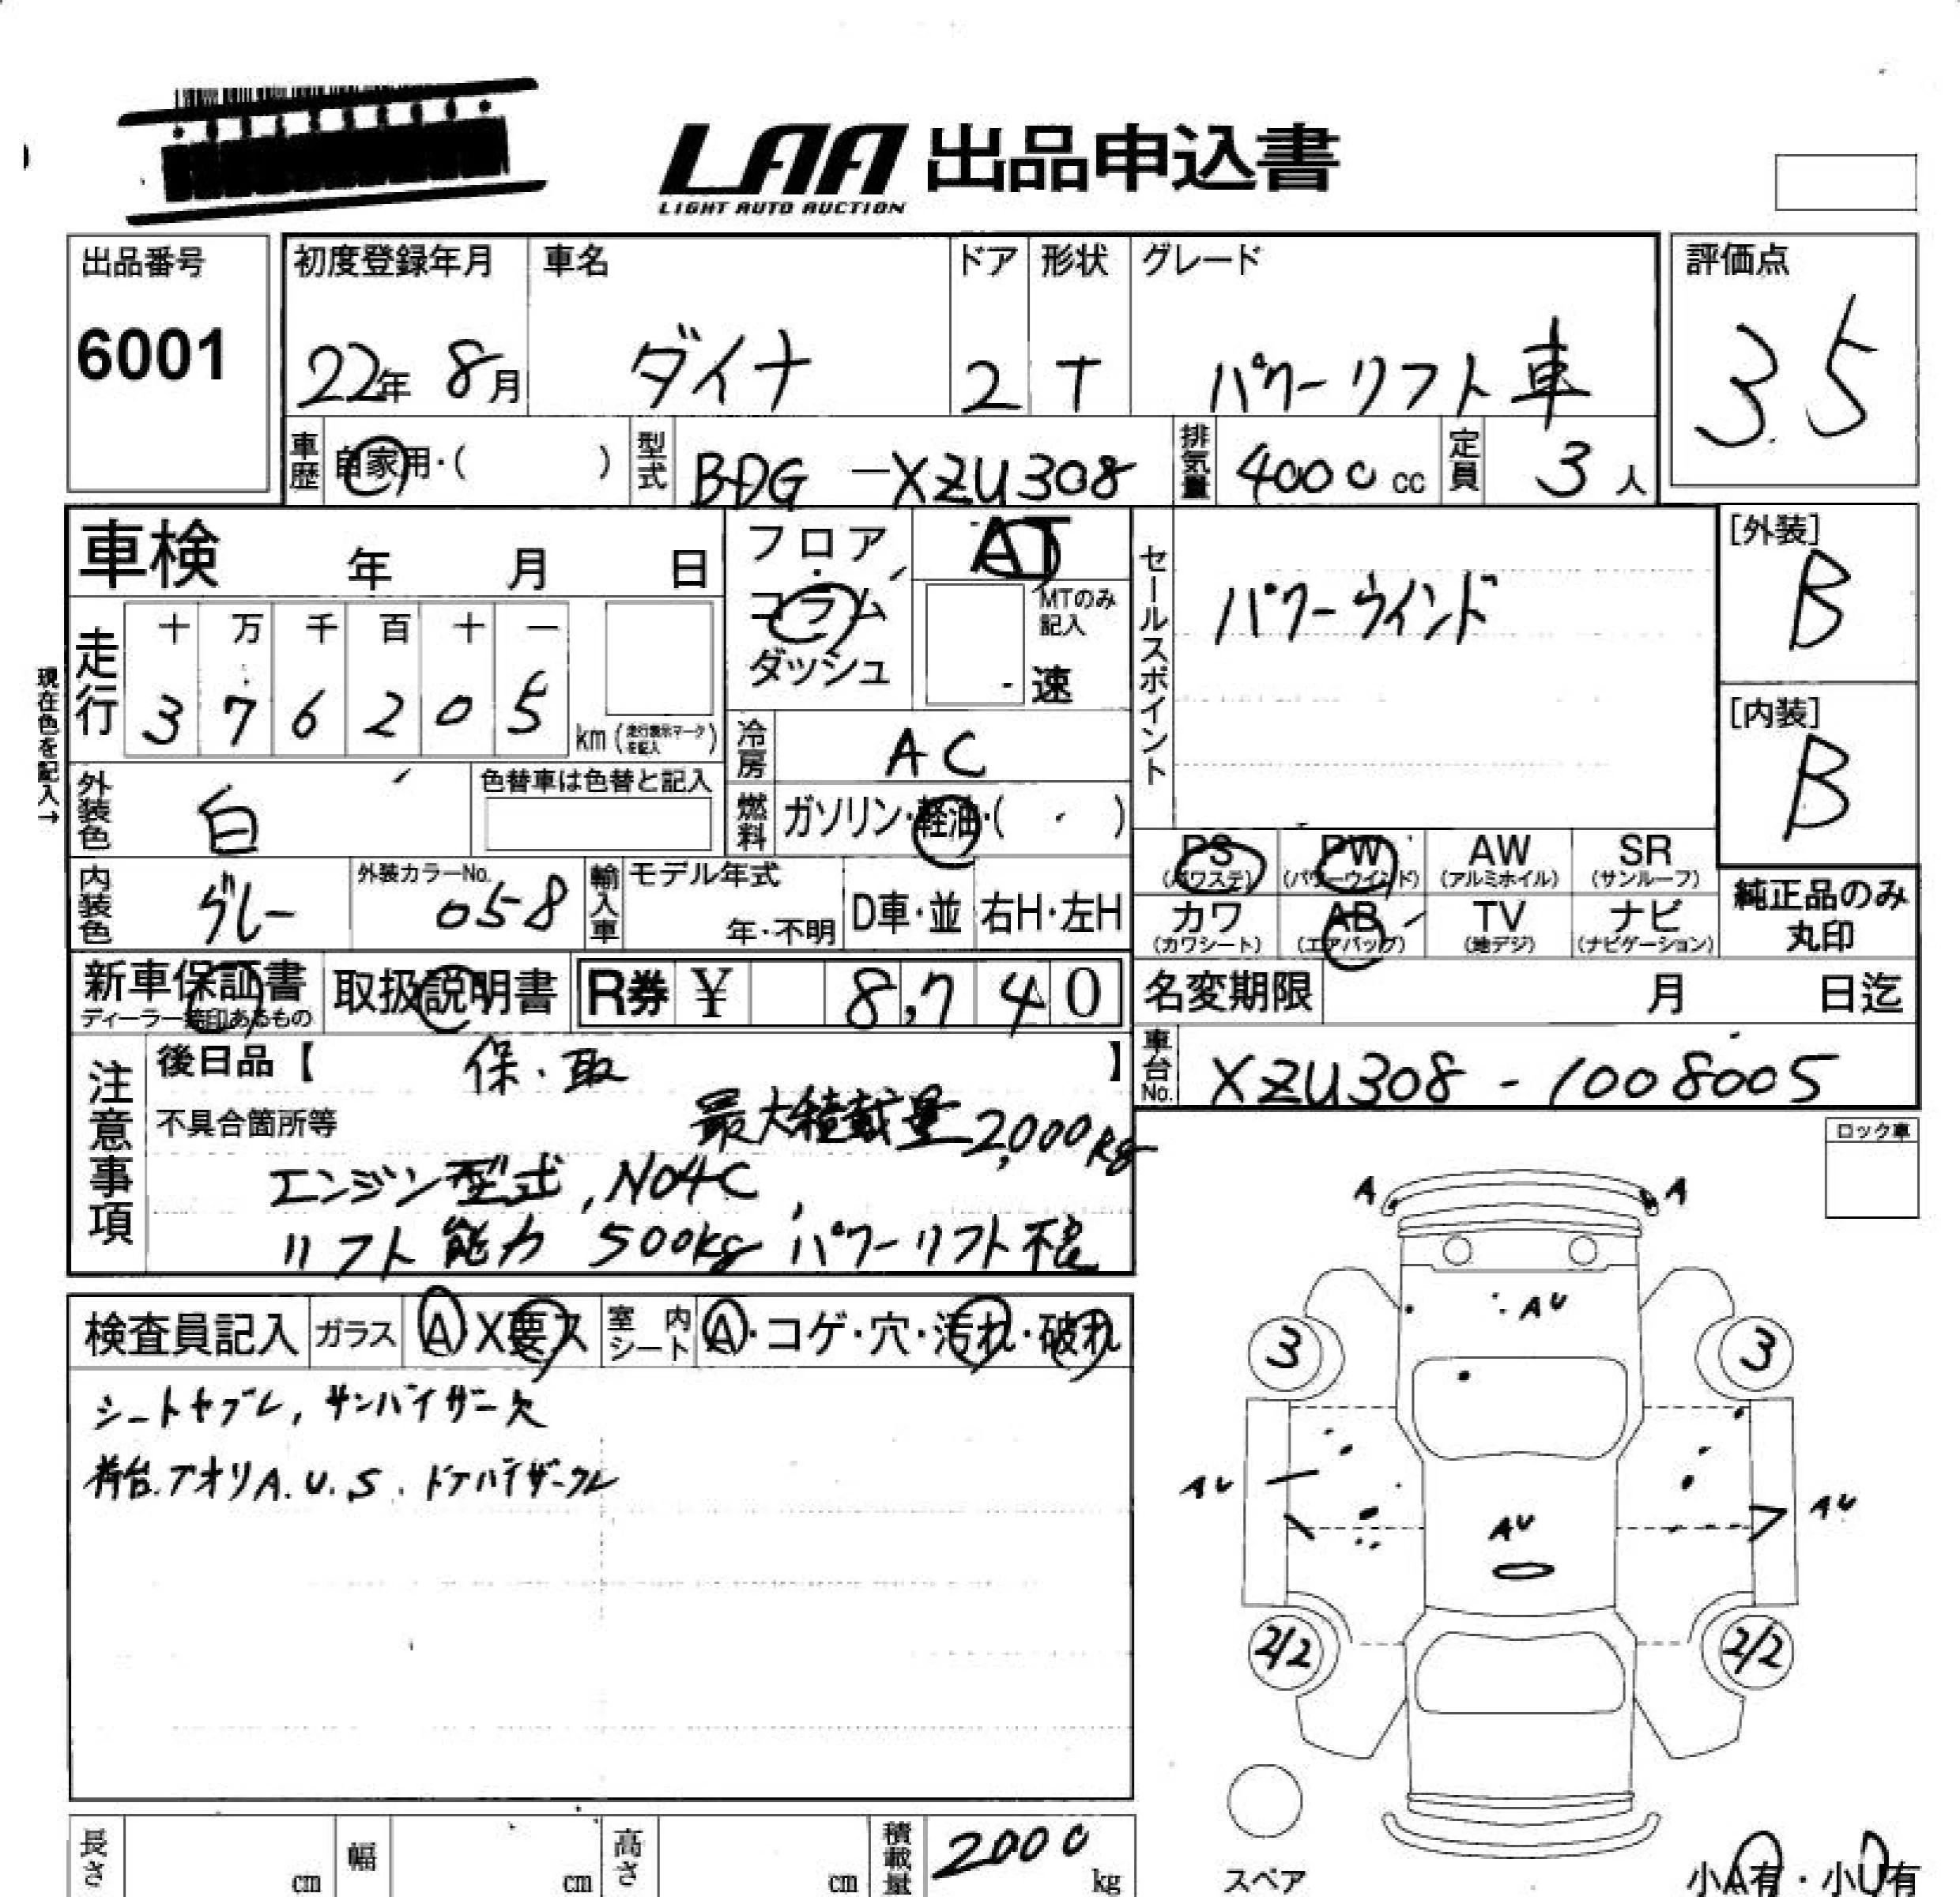 LAA 出品申込書
LIGHT AUTO AUCTION
出品番号 6001
初度登録年月 22年 8月
車名 ダイナ
ドア 2
形状 T
グレード パワーリフト車
評価点 3.5
車歴 自家用・( )
型式 BDG-XZU308
排気量 4000cc
定員 3人
車検 年 月 日
フロア・コラム ダッシュ
AT
MTのみ記入
速
セールスポイント パワーウインド
[外装] B
[内装] B
現在色を記入→
走行 十 万 千 百 十 一
3 7 6 2 0 5 km (走行表示マークを記入)
冷房 AC
外装色 白
色替車は色替と記入
燃料 ガソリン・軽油・( )
PS (パワステ) PW (パワーウインド) AW (アルミホイル) SR (サンルーフ)
内装色 グレー
外装カラーNo. 058
輸入車 モデル年式 年・不明 D車・並 右H・左H
カワ (カワシート) AB (エアバッグ) TV (地デジ) ナビ (ナビゲーション)
純正品のみ丸印
新車保証書 取扱説明書 R券 ¥ 8,740
ディーラー捺印あるもの
名変期限 月 日迄
注意事項 後日品【 保・取 】
車台No. XZU308-1008005
不具合箇所等 最大積載量 2,000kg
エンジン型式, N04C,
リフト能力 500kg パワーリフト不良
ロック車
検査員記入 ガラス A X要ス 室内シート A・コゲ・穴・汚れ・破れ
シートヤブレ, サンバイザー欠
荷台.アオリA.U.S. ドアバイザーワレ
A A
AU
3 3
AU AU AU
2/2 2/2
長さ cm 幅 cm 高さ cm 積載量 2000 kg
スペア
小A有・小U有